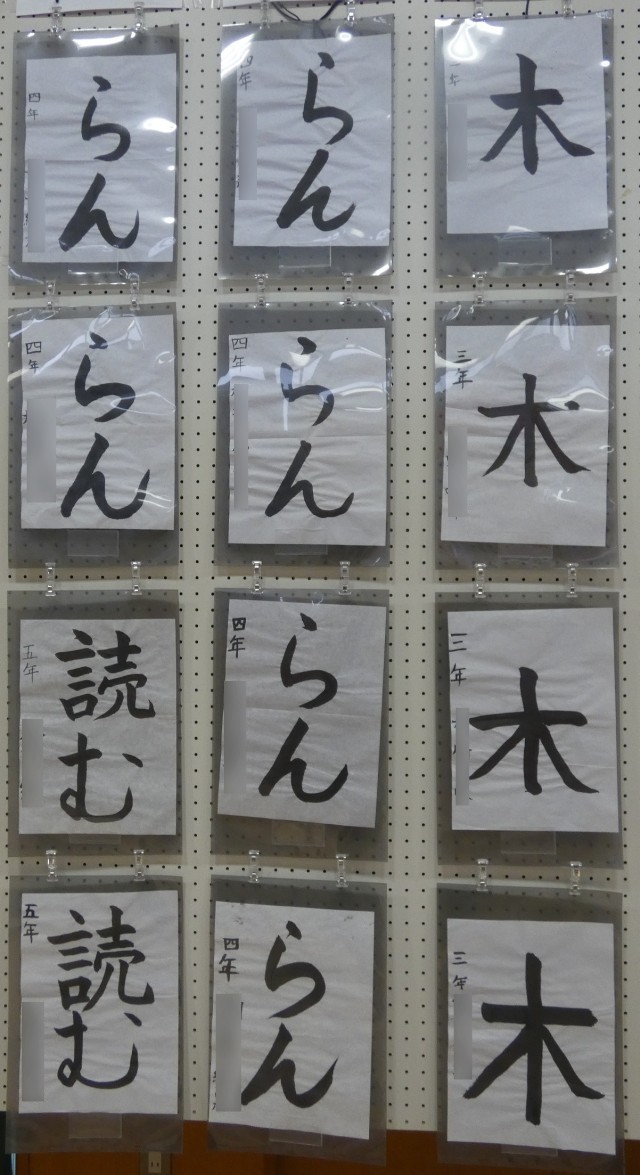 木
年
木
三年
木
三年
木
三年
らん
四年
らん
四年
らん
四年
らん
四年
らん
四年
らん
四年
読む
五年
読む
五年